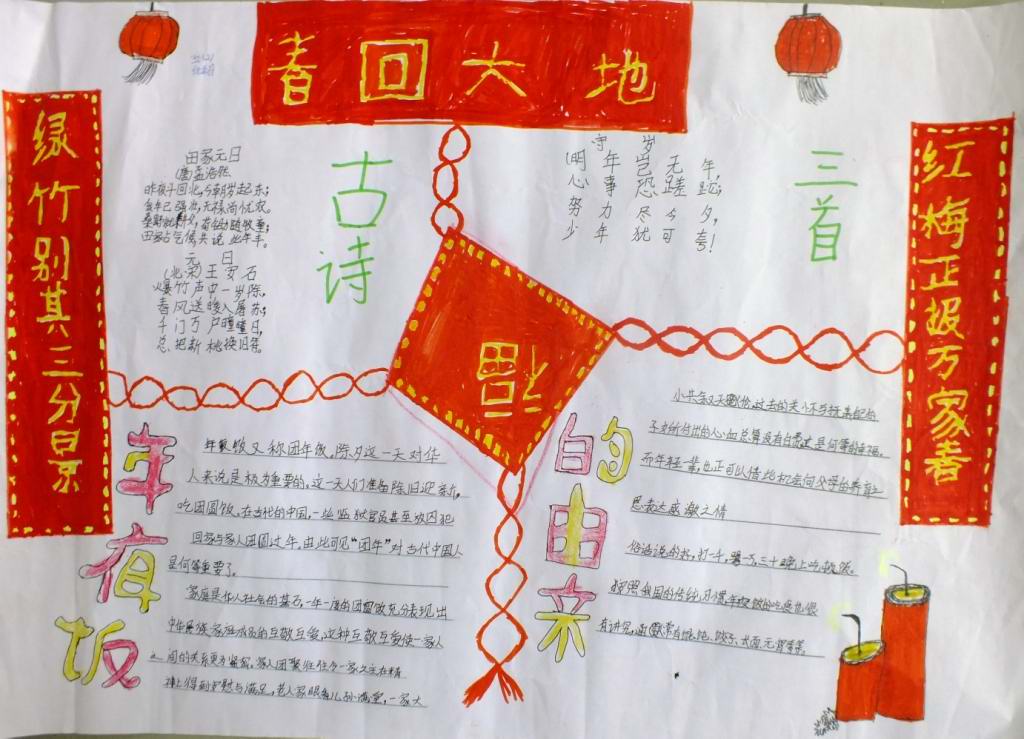 春回大地
绿竹别其三分景
红梅正报万家春
古诗
三首
田家元日
(唐)孟浩然
昨夜斗回北,今朝岁起东;
我年已强壮,无禄尚忧农。
桑野就耕父,荷锄随牧童;
田家占气候,共说此年丰。
元日
(北宋)王安石
爆竹声中一岁除,
春风送暖入屠苏;
千门万户瞳瞳日,
总把新桃换旧符。
守岁
(明年岂无年,
心事恐蹉跎;
努力尽今夕,
少年犹可夸!
福
年夜饭
的由来
年夜饭又称团年饭,除夕这一天对华
人来说是极为重要的,这一天人们准备除旧迎新,
吃团圆饭。在古代的中国,一些监狱官员甚至放囚犯
回家与家人团圆过年,由此可见“团年”对古代中国人
是何等重要了。
家庭是华人社会的基石,一年一度的团圆饭充分表现出
中华民族家庭成员的互敬互爱,这种互敬互爱使一家人
之间的关系更为紧密。家人团聚往往令一家之主在精
神上得到安慰与满足,老人家眼看儿孙满堂,一家大
小共叙天伦,过去的关怀与抚养子
女所付出的心血总算没有白费,这是何等的幸福。
而年轻一辈,也正可以借此机会向父母的养育之
恩表达感激之情
俗语说的好,打一千,骂一万,三十晚上吃顿饭。
按照我国的传统习惯,年夜饭的吃食也很
有讲究,通常有馄饨、饺子、长面、元宵等等。